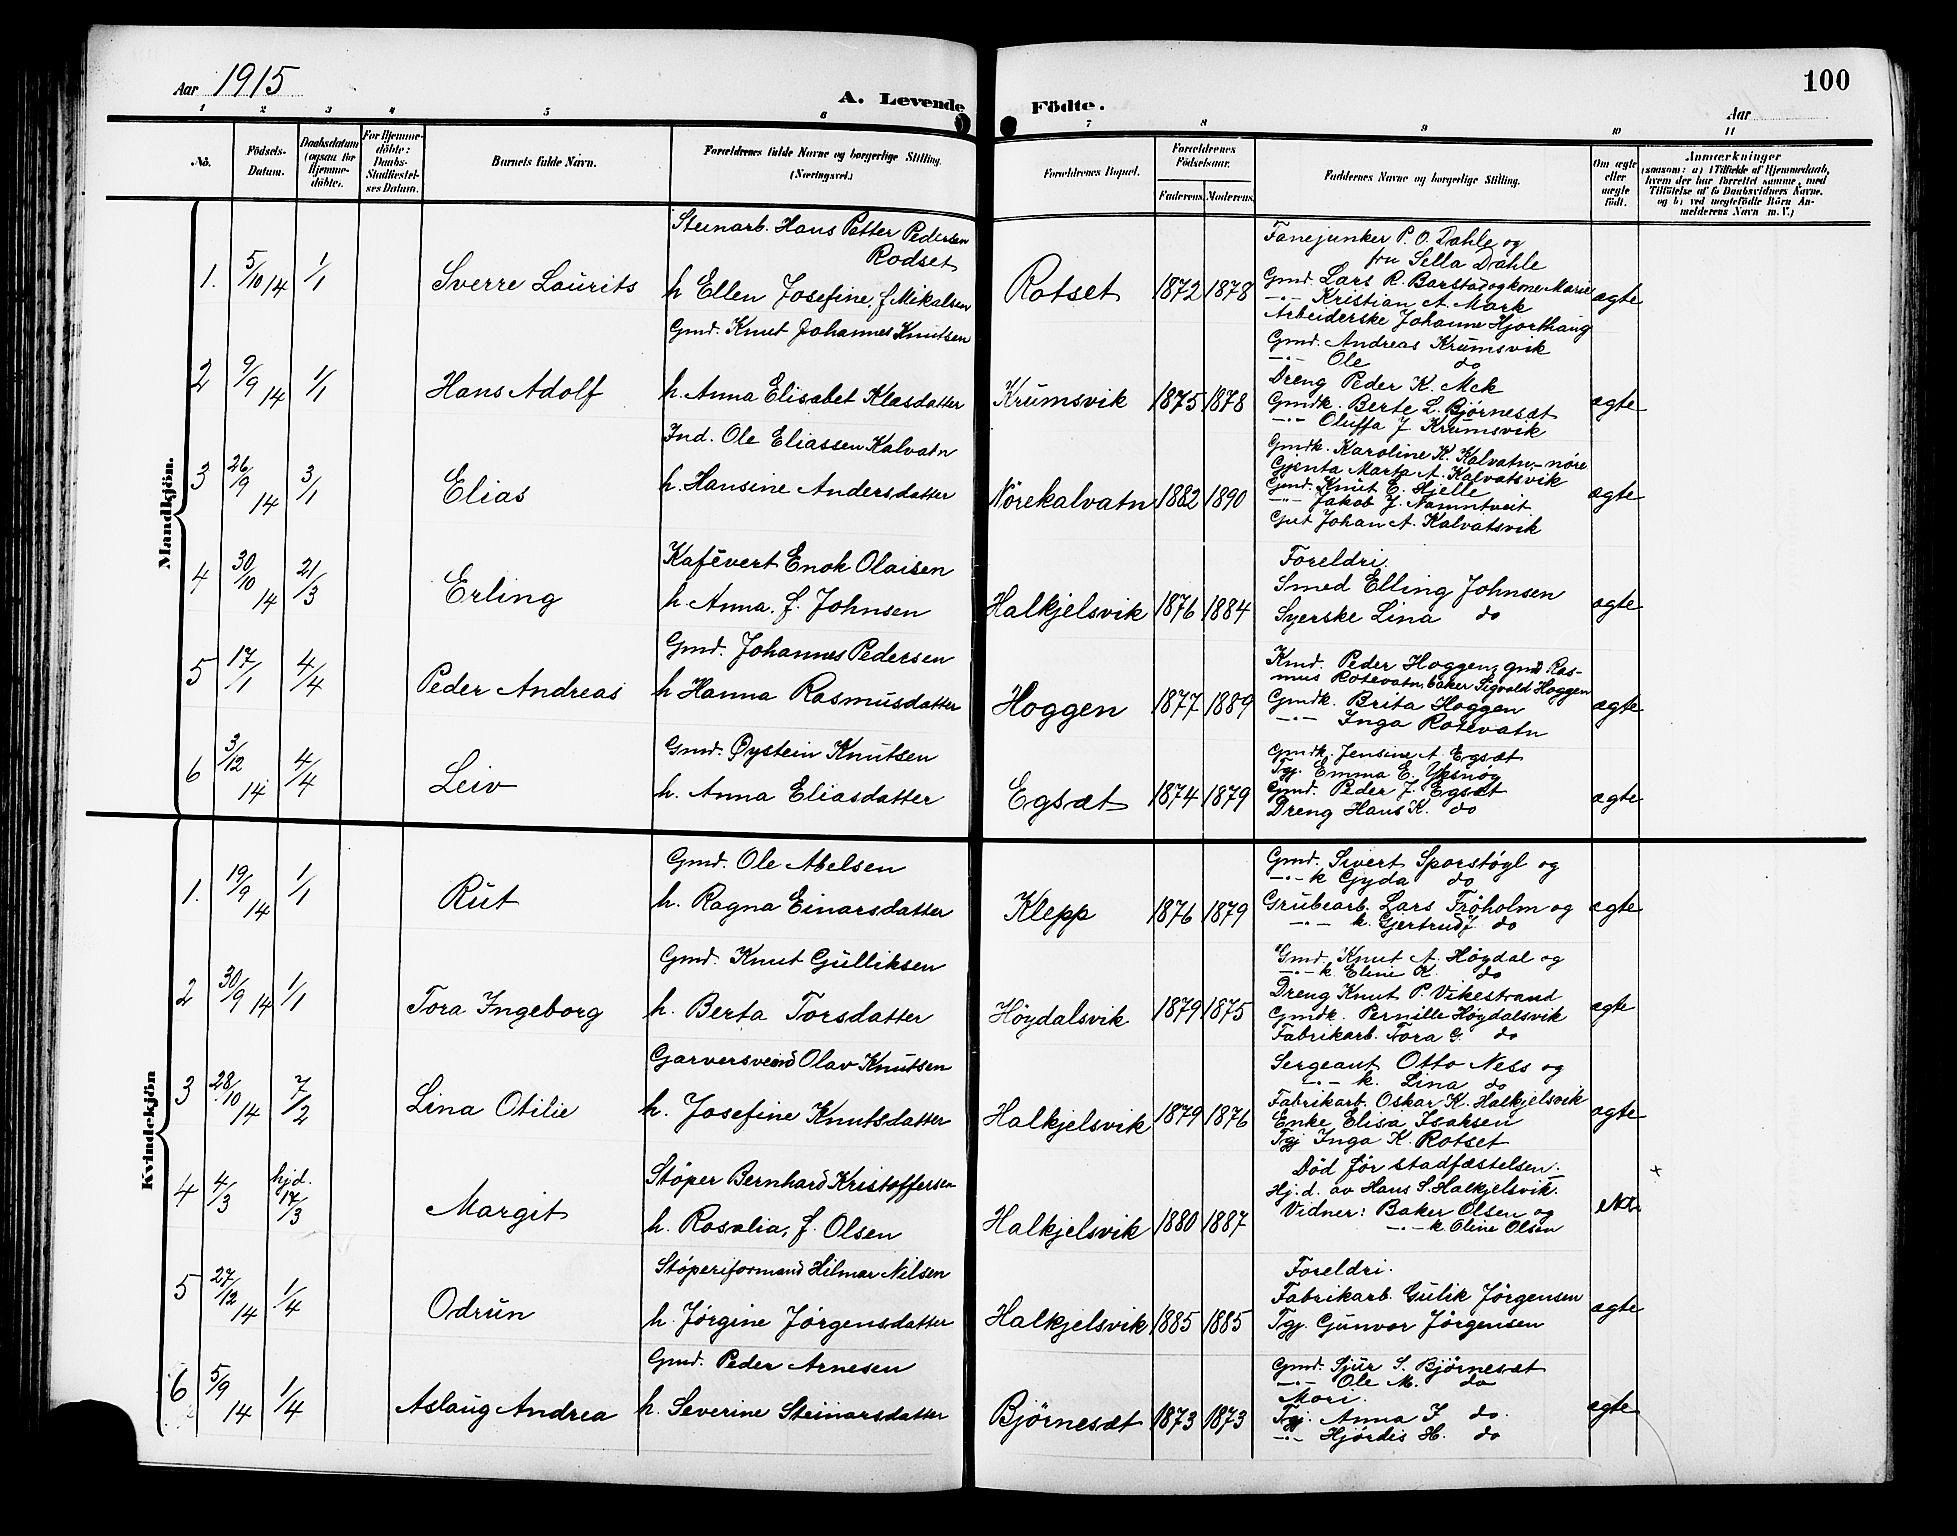 Aar 1915
A. Levende Födte.
100
Aar
1 2 3 4 5 6 7 8 9 10 11
No.
Födsels-Datum.
Daabsdatum (ogsaa for Hjemme-döbte).
For Hjemme-döbte: Daabs-Stadfæstel-ses Datum.
Barnets fulde Navn.
Forældrenes fulde Navne og borgerlige Stilling. (Næringsvei.)
Forældrenes Bopæl.
Forældrenes Födselsaar.
Faderens. Moderens.
Faddernes Navne og borgerlige Stilling.
Om ægte eller uægte født.
Anmærkninger
(saasom: a) i Tilfælde af Hjemmedaab, hvem der har forrettet samme, med Tilföielse af to Daabsvidners Navne, og b) ved uægtefödte Börn An-melderens Navn m. V.)
Mandkjön.
1. 5/10 14 1/1 Sverre Laurits
Steinarb. Hans Petter Pedersen
Rodset
h Ellen Josefine, f Mikalsen
Rotset 1872 1878
Fanejunker P. O. Dahle og
fru Sella Dahle
Gmd. Lars R. Barstad og kone Marie
-"- Kristian A. Mark
Arbeiderske Johanne Hjorthaug
ægte
2 9/9 14 1/1 Hans Adolf
Gmd. Knut Johannes Knutsen
h. Anna Elisabet Klasdatter
Krumsvik 1875 1878
Gmd. Andreas Krumsvik
-"- Ole do
Dreng Peder K. Mek
Gmdk. Berte L. Bjørnesæt
-"- Oluffa J Krumsvik
ægte
3 26/9 14 3/1 Elias
Ind. Ole Eliassen Kalvatn
h. Hansine Andersdatter
Nörekalvatn 1882 1890
Gmdk. Karoline K. Kalvatn-nöre
Gjenta Marta A. Kalvatsvik
Gmd. Knut E. Hjelle
-"- Jakob J. Namntveit
Gut Johan A. Kalvatsvik
ægte
4 30/10 14 21/3 Erling
Kafévert Enok Olaisen
h. Anna, f. Johnsen
Halkjelsvik 1876 1884
Foreldri.
Smed Elling Johnsen
Syerske Lina do
ægte
5 17/1 4/4 Peder Andreas
Gmd. Johannes Pedersen
h Hanna Rasmusdatter
Hoggen 1877 1889
Kmd. Peder Hoggen, gmd Ras-
mus Rotevatn, baker Sigvald Hoggen
Gmdk. Brita Hoggen
-"- Inga Rotevatn
ægte
6 3/12 14 4/4 Leiv
Gmd. Øystein Knutsen
h. Anna Eliasdatter
Egsæt 1874 1879
Gmdk. Jensine A. Egsæt
Tgj. Emma E. Yksnøy
Gmd. Peder J. Egsæt
Dreng Hans K. do
ægte
Kvindekjön
1. 19/9 14 1/1 Rut
Gmd. Ole Abelsen
h. Ragna Einarsdatter
Klepp 1876 1879
Gmd. Sivert Sporstøyl og
-"- k Gyda do
Grubearb. Lars Trøholm og
-"- k. Gjertrud J. do
ægte
2 30/9 14 1/1 Tora Ingeborg
Gmd. Knut Gulliksen
h. Berta Torsdatter
Höydalsvik 1879 1875
Gmd. Knut A. Høydal og
-"- k. Eline K. do
Dreng Knut P. Vikestrand
Gmdk. Pernille Høydalsvik
Fabrikarb. Tora G. do
ægte
3 28/10 14 7/2 Lina Otilie
Garversvend Olav Knutsen
h. Josefine Knutsdatter
Halkjelsvik 1879 1876
Sergeant Otto Ness og
-"- k. Lina do
Fabrikarb. Oskar K. Halkjelsvik
Enke Elisa Isaksen
Tgj Inga K. Rotset
ægte
4 4/3 hjd. 17/3 Margit
Støper Bernhard Kristoffersen
h. Rosalia, f. Olsen
Halkjelsvik 1880 1887
Død før stadfæstelsen.
Hj.d. av Hans S. Halkjelsvik.
Vidner: Baker Olsen og
-"- k. Oline Olsen
×
5 27/12 14 1/4 Odrun
Støperiformand Hilmar Nilsen
h. Jørgine Jørgensdatter
Halkjelsvik 1885 1885
Foreldri.
Fabrikarb. Gulik Jørgensen
Tgj. Gunvor Jørgensen
ægte
6 5/9 14 1/4 Aslaug Andrea
Gmd. Peder Arnesen
h. Severine Steinarsdatter
Bjørnesæt 1873 1873
Gmd. Sjur S. Bjørnesæt
-"- Ole M. do
Mori.
Tgj. Anna J do.
-"- Hjördis H. do
ægte